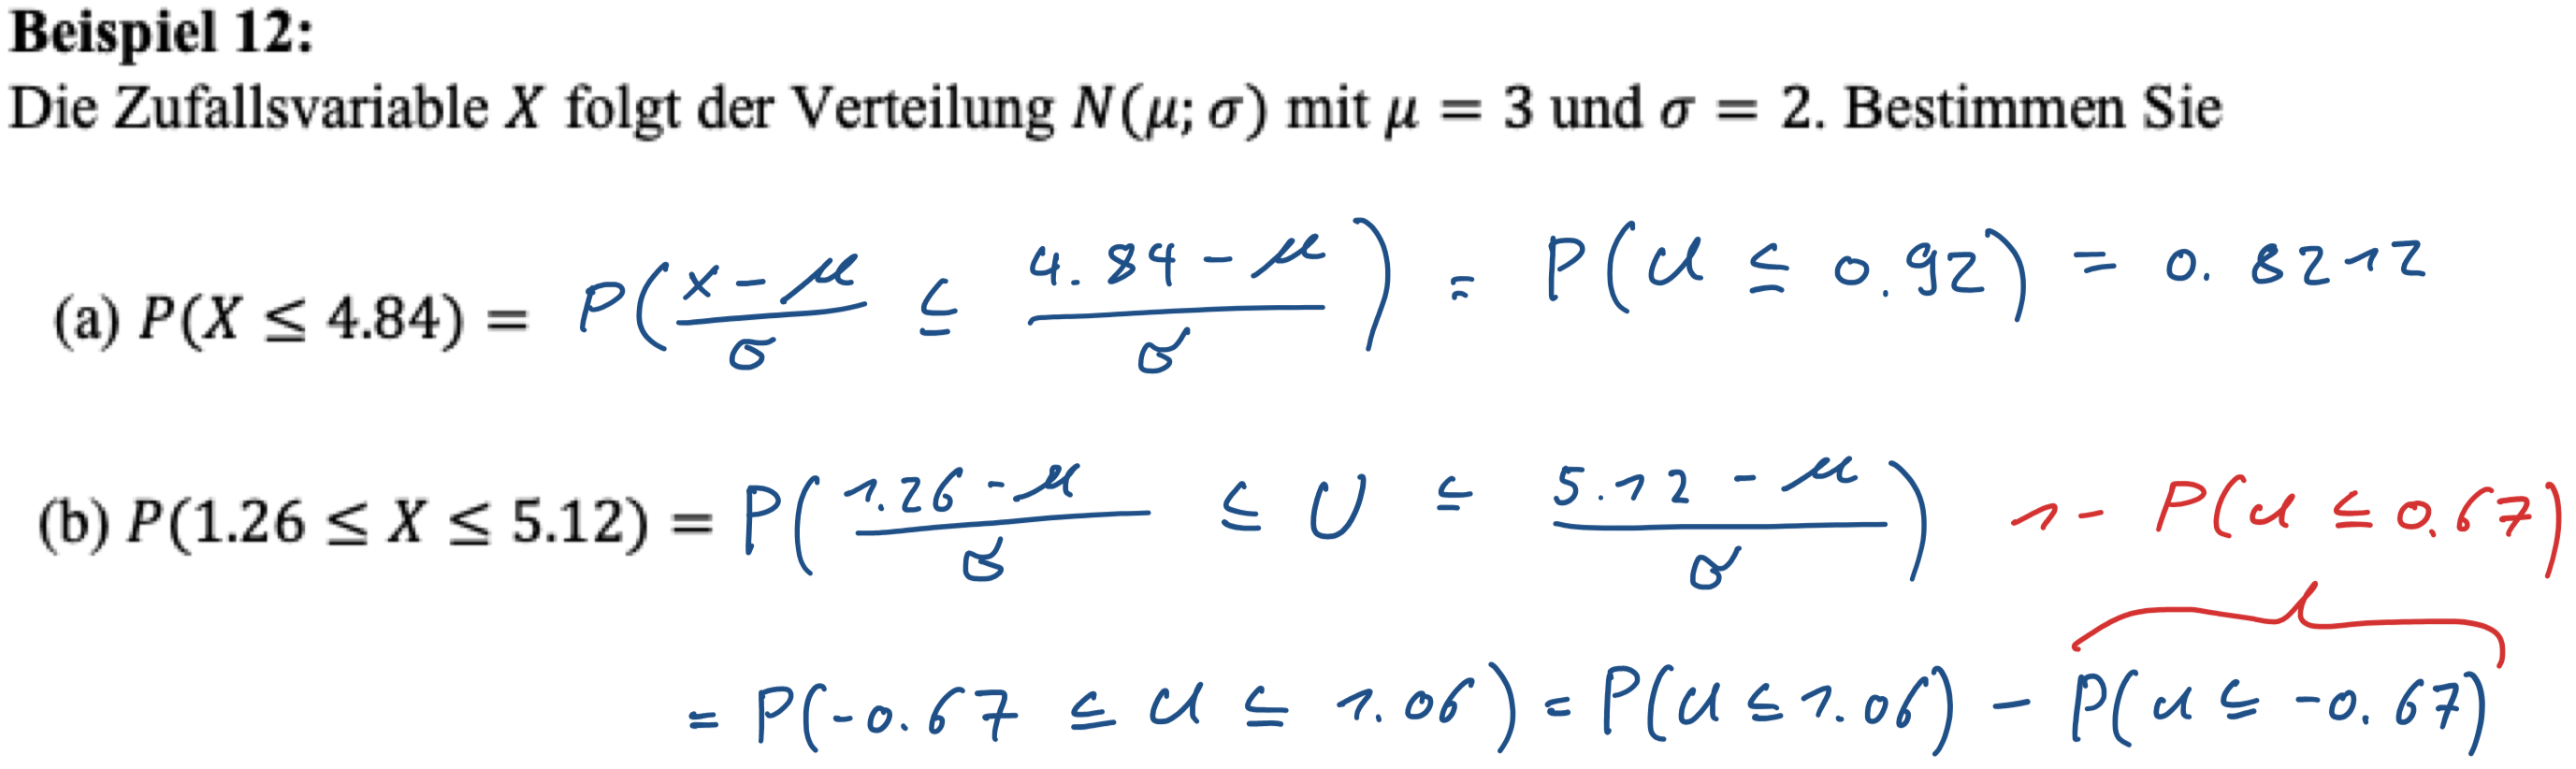 Beispiel 12:
Die Zufallsvariable X folgt der Verteilung N(μ; σ) mit μ = 3 und σ = 2. Bestimmen Sie
(a) P(X ≤ 4.84) = P((x - μ)/σ ≤ (4.84 - μ)/σ) = P(U ≤ 0.92) = 0.8212
(b) P(1.26 ≤ X ≤ 5.12) = P((1.26 - μ)/σ ≤ U ≤ (5.12 - μ)/σ) 1 - P(U ≤ 0.67)
= P(-0.67 ≤ U ≤ 1.06) = P(U ≤ 1.06) - P(U ≤ -0.67)